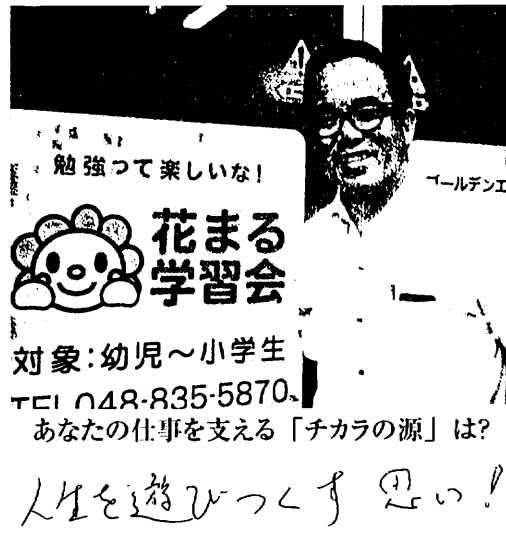 勉強って楽しいな!
花まる
学習会
対象:幼児～小学生
TEL 048-835-5870
ールデンエ
あなたの仕事を支える「チカラの源」は?
人生を遊びつくす思い!